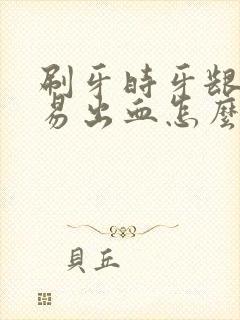 刷牙時牙齦
易出血怎麼
貝丘